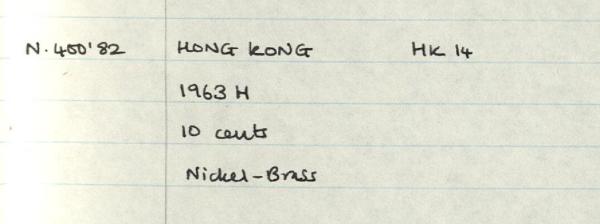 N. 400'82 HONG KONG HK 14
1963 H
10 cents
Nickel-Brass